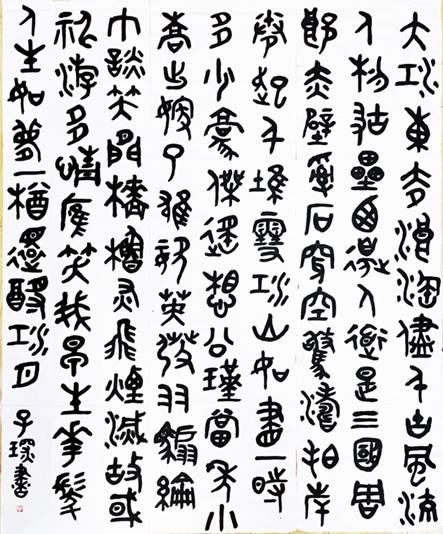 大江東去浪淘盡千古風流
人物故壘西邊人道是三國周
郎赤壁亂石穿空驚濤拍岸
卷起千堆雪江山如畫一時
多少豪傑遥想公瑾當年小
喬出嫁了雄姿英發羽扇綸
巾談笑間檣櫓灰飛煙滅故或
神游多情應笑我早生華髮
人生如夢一樽還酹江月
子琛書